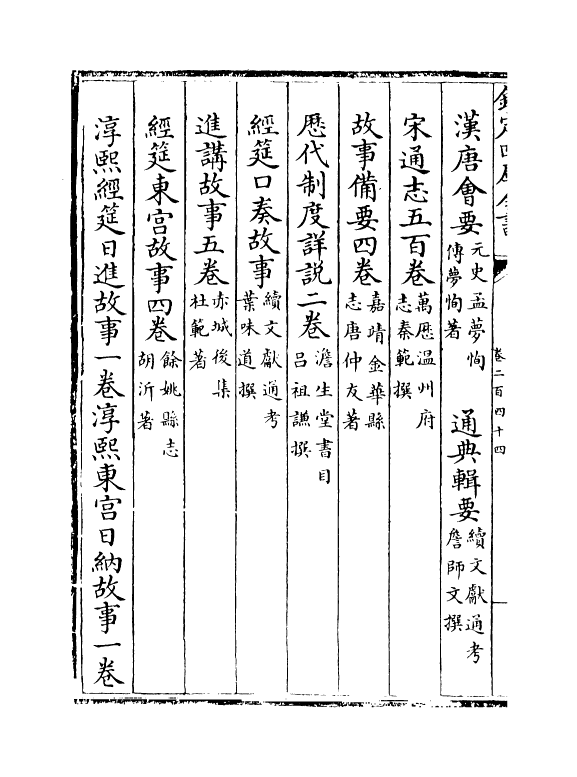 欽定四庫全書
卷二百四十四
漢唐會要元史孟夢恂傳夢恂著 通典輯要續文獻通考詹師文撰
宋通志五百卷萬厯温州府志秦範撰
故事備要四卷嘉靖金華縣志唐仲友著
厯代制度詳説二卷澹生堂書目吕祖謙撰
經筵口奏故事續文獻通考葉味道撰
進講故事五卷赤城後集杜範著
經筵東宫故事四卷餘姚縣志胡沂著
淳熙經筵日進故事一卷淳熙東宫日納故事一卷